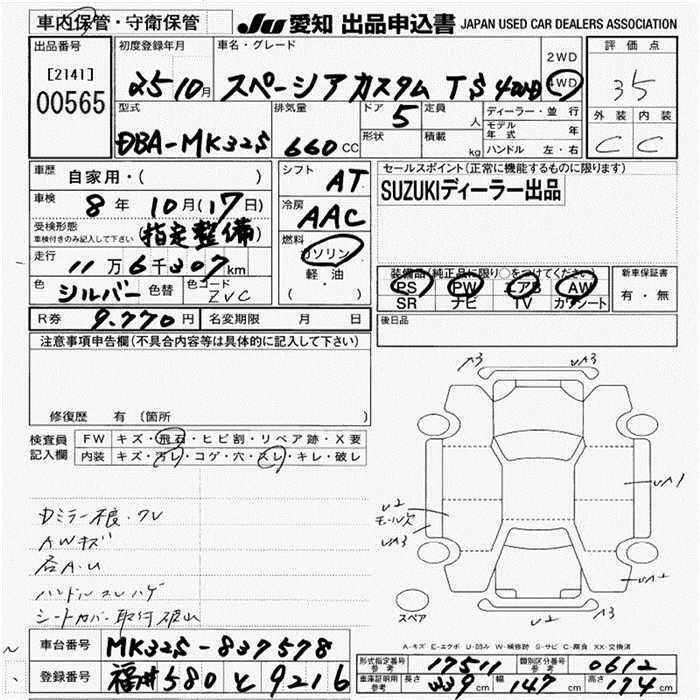 車内保管・守衛保管
JU 愛知 出品申込書 JAPAN USED CAR DEALERS ASSOCIATION
出品番号
[2141]
00565
初度登録年月
25 10月
車名・グレード
スペーシアカスタム TS 4WD
2WD
4WD
評価点
35
外装 内装
C C
型式
DBA-MK32S
排気量
660 CC
ドア 5
形状
定員 人
積載 kg
ディーラー・並行
モデル年式 年
ハンドル 左・右
車歴 自家用・( )
車検 8年 10月(17日)
受検形態
車検付きのみ記入して下さい
(指定整備)
走行 11万6千307km
色 シルバー 色替 色コード ZVC
シフト AT
冷房 AAC
燃料
ガソリン
軽・油
( ・ )
セールスポイント(正常に機能するものに限ります)
SUZUKIディーラー出品
装備品(純正品に限り○をつけてください)
PS PW エアB AW
SR ナビ TV カワシート
新車保証書
有・無
R券 9.770円 名変期限 月 日
後日品
注意事項申告欄(不具合内容等は具体的に記入して下さい)
修復歴 有 (箇所
検査員記入欄
FW キズ・飛石・ヒビ割・リペア跡・X要
内装 キズ・汚レ・コゲ・穴・スレ・キレ・破レ
Dミラー不良・ワレ
AWキズ
右A.U
ハンドルスレハゲ
シートカバー取付 破
A3
UA3
UA1
U2
モール欠
UA3
UA2
U2
スペア
A-キズ E-エクボ U-凹み W-補修跡 S-サビ C-腐食 XX-交換済
車台番号 MK32S-837578
登録番号 福井580 と 9216
形式指定番号 参考 17511 類別区分番号 参考 0612
車庫証明用 参考 長さ 339cm 幅 147cm 高さ 174cm